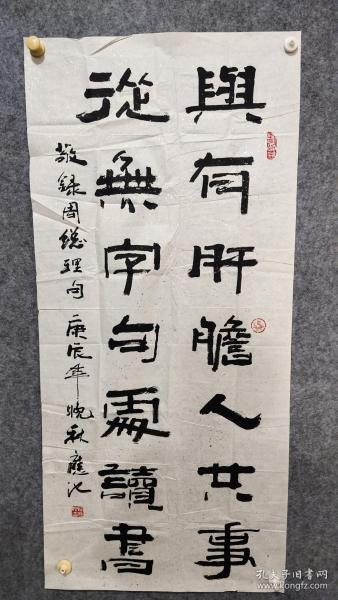 與有肝膽人共事
從無字句處讀書
敬録周總理句 庚辰年晚秋應池
孔夫子旧书网